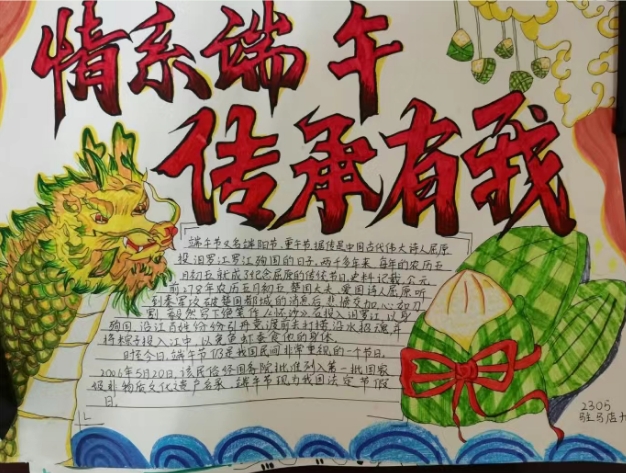 情系端午
传承有我
端午节又名端阳节、重午节,据传是中国古代伟大诗人屈原
投汨罗江殉国的日子,两千多年来,每年的农历五
月初五就成了纪念屈原的传统节日,史料记载,公元
前278年农历五月初五,楚国大夫、爱国诗人屈原听
到秦军攻破楚国都城的消息后,悲愤交加,心如刀
割,毅然写下绝笔作《怀沙》,投入汨罗江,以身
殉国。沿江百姓纷纷引舟竞渡前去打捞,沿水招魂,并
将粽子投入江中,以免鱼虾蚕食他的身体。
时至今日,端午节仍是我国民间非常重视的一个节日。
2006年5月20日,该民俗经国务院批准列入第一批国家
级非物质文化遗产名录,端午节现为我国法定节假
日。
2305
驻马店